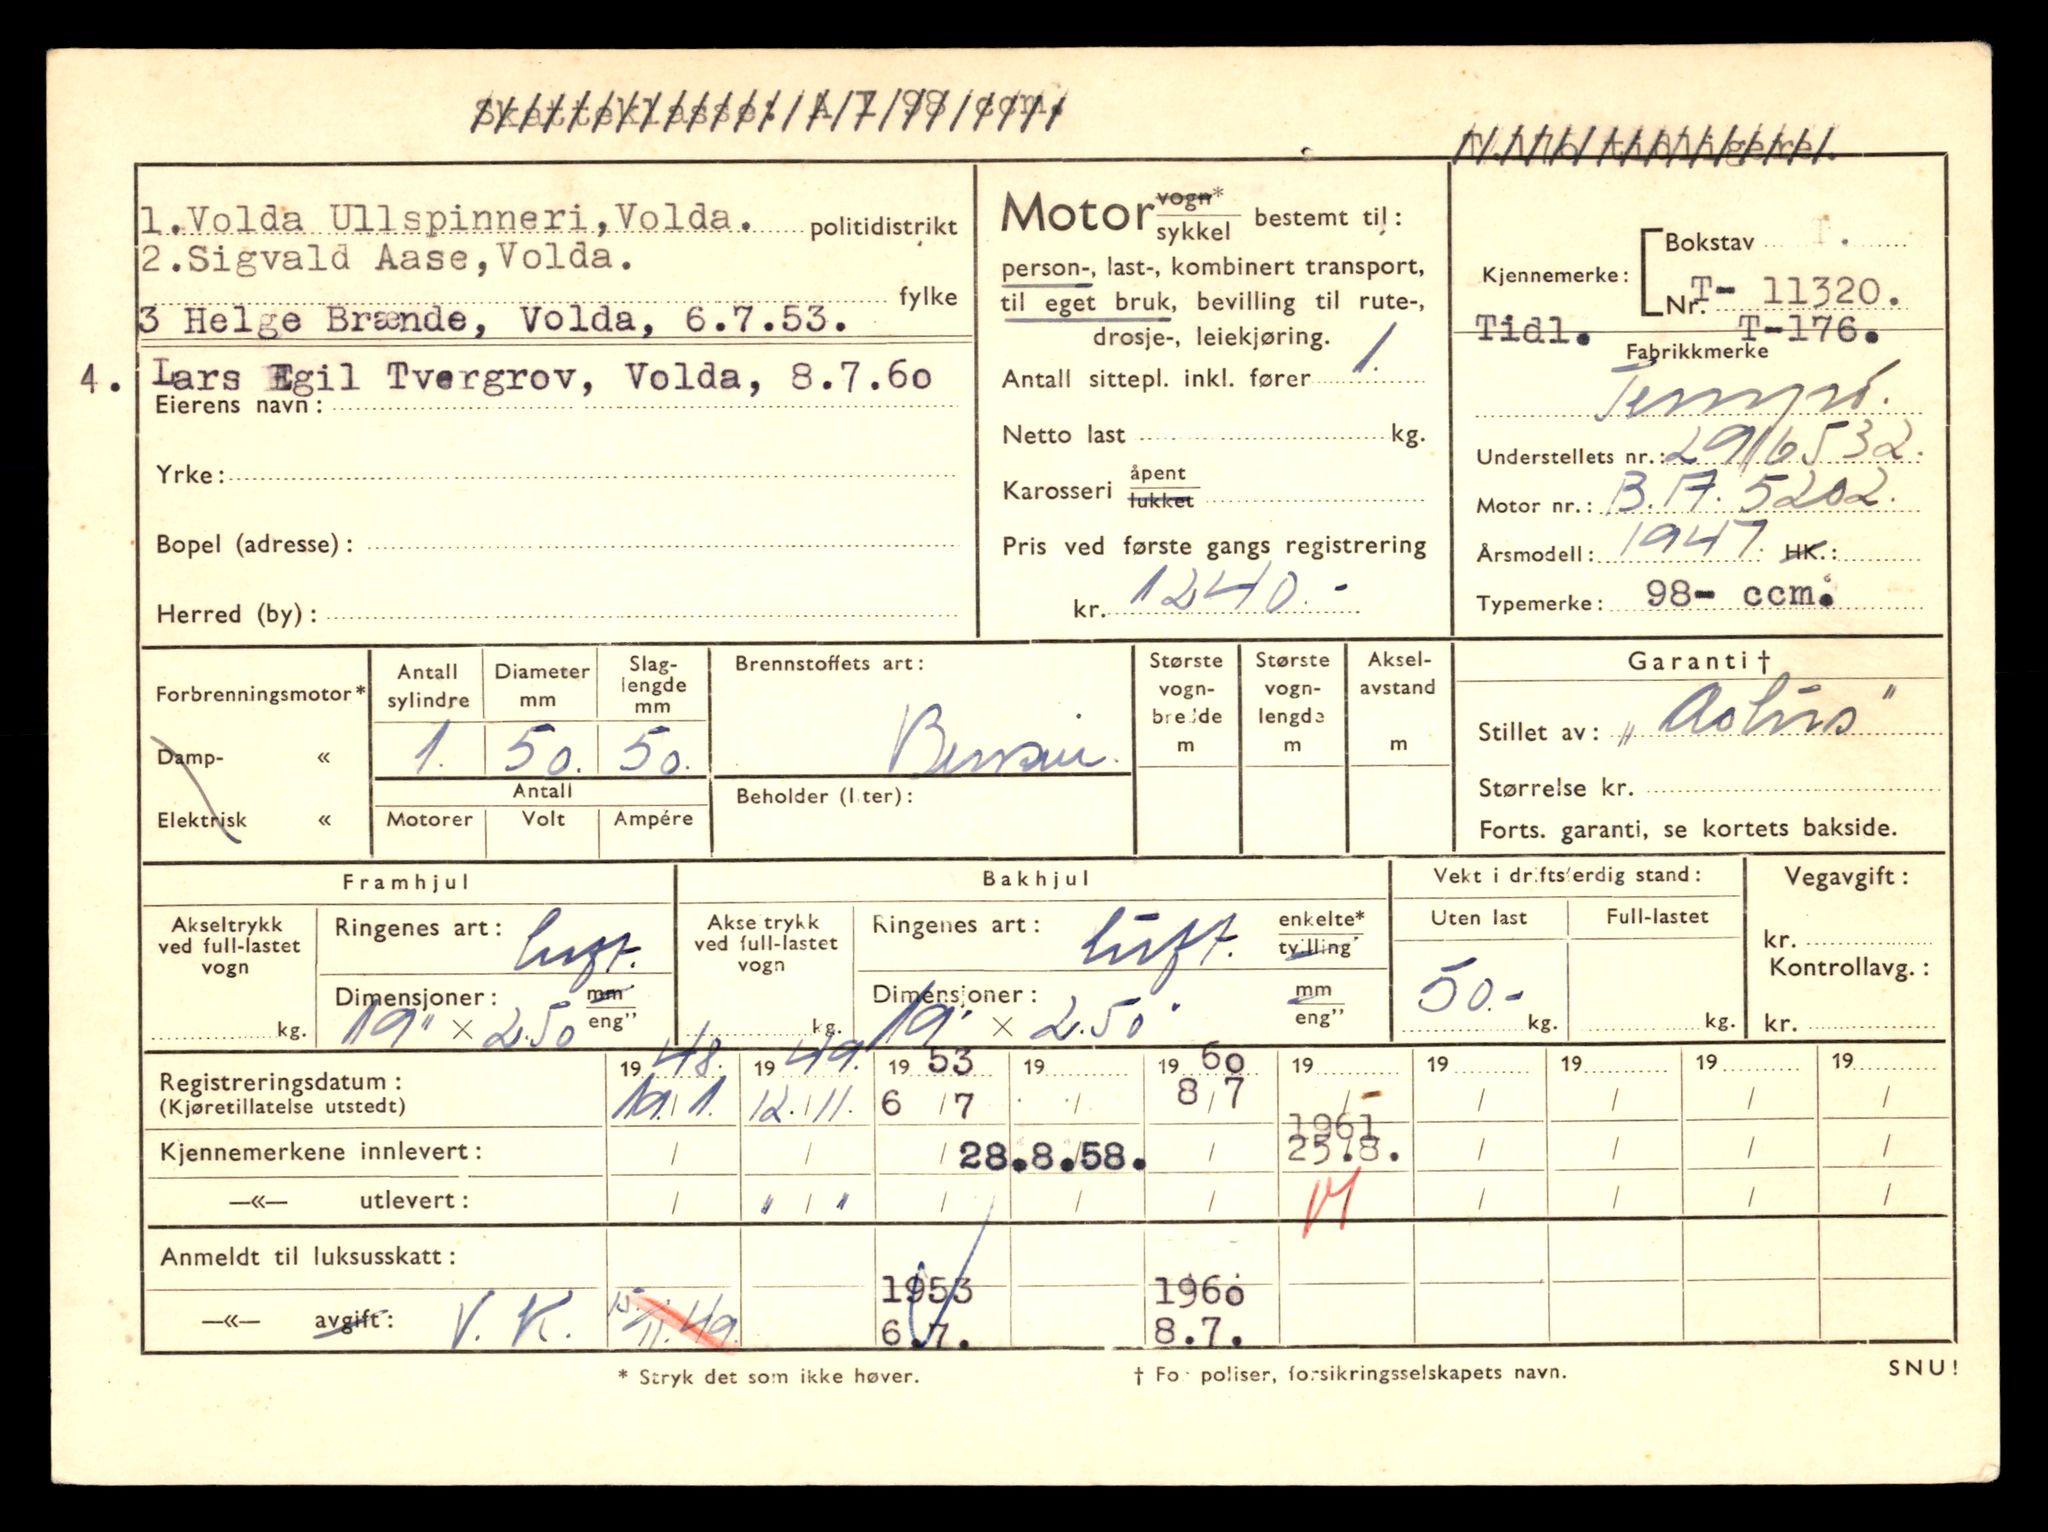 Skatteklasse: A/7/98 ccm.
1.Volda Ullspinneri,Volda. politidistrikt
2.Sigvald Aase,Volda.
fylke
3 Helge Brænde, Volda, 6.7.53.
4. Lars Egil Tvergrov, Volda, 8.7.60
Eierens navn:
Yrke:
Bopel (adresse):
Herred (by):
Motor vogn* sykkel bestemt til:
person-, last-, kombinert transport,
til eget bruk, bevilling til rute-,
drosje-, leiekjøring.
Antall sittepl. inkl. fører 1.
Netto last kg.
Karosseri åpent lukket
Pris ved første gangs registrering
kr. 1240.-
Kjennemerke: Bokstav T.
Nr. T- 11320.
Tidl. T-176.
Fabrikkmerke
Tempo.
Understellets nr.: 2916532.
Motor nr.: B.17. 5202.
Årsmodell: 1947. HK.:
Typemerke: 98- ccm.
Forbrenningsmotor*
Damp- «
Elektrisk «
Antall sylindre Diameter mm Slaglengde mm
1. 50. 50.
Antall
Motorer Volt Ampére
Brennstoffets art:
Bensin.
Beholder (liter):
Største vognbredde m
Største vognlengde m
Akselavstand m
Garanti †
Stillet av: "Aolus"
Størrelse kr.
Forts. garanti, se kortets bakside.
Framhjul
Akseltrykk ved full-lastet vogn
kg.
Ringenes art: luft.
Dimensjoner: mm eng"
19" × 2.50
Bakhjul
Akseltrykk ved full-lastet vogn
kg.
Ringenes art: luft. enkelte* tvilling
Dimensjoner: mm eng"
19" × 2.50"
Vekt i driftsferdig stand:
Uten last Full-lastet
50.- kg. kg.
Vegavgift:
kr.
Kontrollavg.:
kr.
Registreringsdatum: 19 48. 19 49. 19 53 19 19 60 19 19 19 19 19
(Kjøretillatelse utstedt) 19./1. 12./11. 6/7 / 8/7 / / / / /
1961
Kjennemerkene innlevert: / / / 28.8.58. / 25.8. / / / /
—«— utlevert: / " / " / / / / / / /
Anmeldt til luksusskatt:
1953 1960
—«— avgift: V. K. 15./11.49. 6.7. 8.7.
* Stryk det som ikke høver.
† For poliser, forsikringsselskapets navn.
SNU!